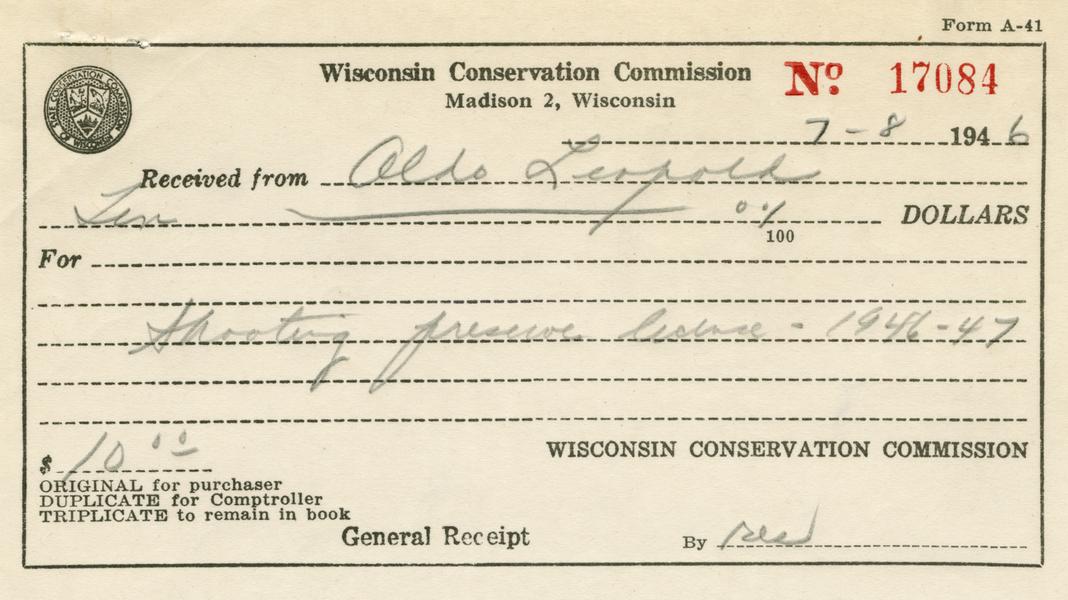 Form A-41
Wisconsin Conservation Commission
Nº 17084
Madison 2, Wisconsin
7-8 1946
Received from Aldo Leopold
Ten 00/100 DOLLARS
For
Shooting preserve license - 1946-47
WISCONSIN CONSERVATION COMMISSION
$ 10 00
ORIGINAL for purchaser
DUPLICATE for Comptroller
TRIPLICATE to remain in book
General Receipt
By